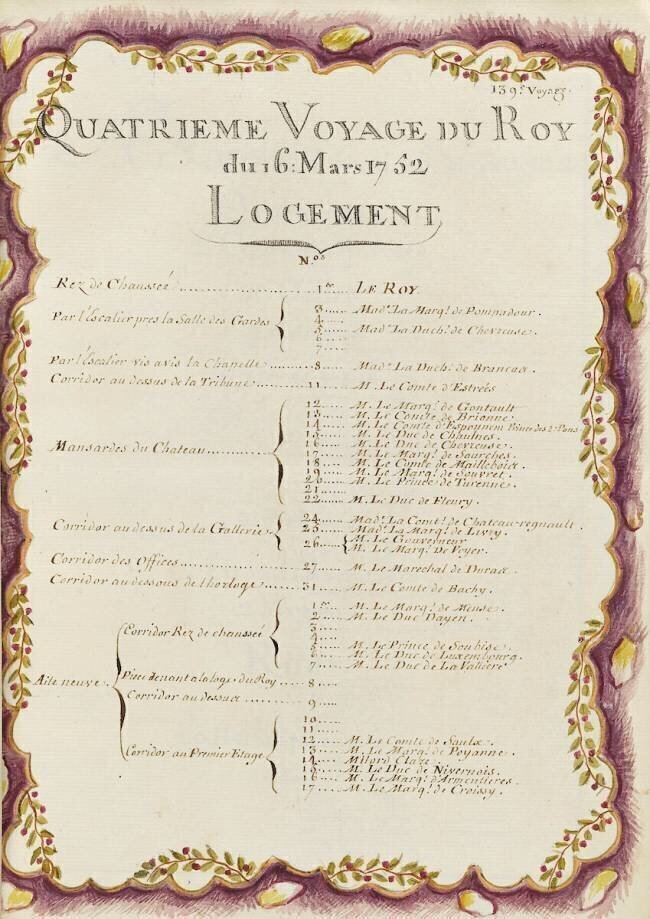 139.e Voyage.
QUATRIEME VOYAGE DU ROY
du 16: Mars 1752
LOGEMENT
N.os
Rez de Chaussée ........ 1er ..... LE ROY.
Par l'Escalier pres la Salle des Gardes
3 ..... Mad.e La Marq.e de Pompadour.
4 .....
5 ..... Mad.e La Duch.e de Chevreuse.
6 .....
7 .....
Par l'Escalier vis avis la Chapelle ........ 8 ..... Mad.e La Duch.e de Brancas.
Corridor au dessus de la Tribune ........ 11 ..... M. Le Comte d'Estrées
Mansardes du Chateau ........
12 ..... M. Le Marq.s de Gontault
13 ..... M. Le Comte de Brionne.
14 ..... M. Le Comte d'Eponnem Prince des 2. Ponts
15 ..... M. Le Duc de Chaulnes.
16 ..... M. Le Duc de Chevreuse.
17 ..... M. Le Marq.s de Sourches.
18 ..... M. Le Comte de Maillebois.
19 ..... M. Le Marq.s de Souvret.
20 ..... M. Le Prince de Turenne.
21 .....
22 ..... M. Le Duc de Fleury.
Corridor au dessus de la Gallerie
24 ..... Mad.e La Comt.e de Chateau-regnault.
25 ..... Mad.e La Marq.e de Livry.
26 ..... M. Le Gouverneur
M. Le Marq.s De Voyer.
Corridor des Offices ........ 27 ..... M. Le Marechal de Duras.
Corridor au dessous de l'horloge ........ 31 ..... M. Le Comte de Bachy.
Aile neuve.
Corridor Rez de chaussée
1er ..... M. Le Marq.s de Meuse.
2 ..... M. Le Duc Dayen.
3 .....
4 .....
5 ..... M. Le Prince de Soubise.
6 ..... M. Le Duc de Luxembourg.
7 ..... M. Le Duc de La Valliere
Piece tenant a la loge du Roy ..... 8 .....
Corridor au dessus ..... 9 .....
Corridor au Premier Etage
10 .....
11 .....
12 ..... M. Le Comte de Saulx.
13 ..... M. Le Marq.s de Poyanne.
14 ..... Milord Clare.
15 ..... M. Le Duc de Nivernois.
16 ..... M. Le Marq.s d'Armentieres.
17 ..... M. Le Marq.s de Croissy.